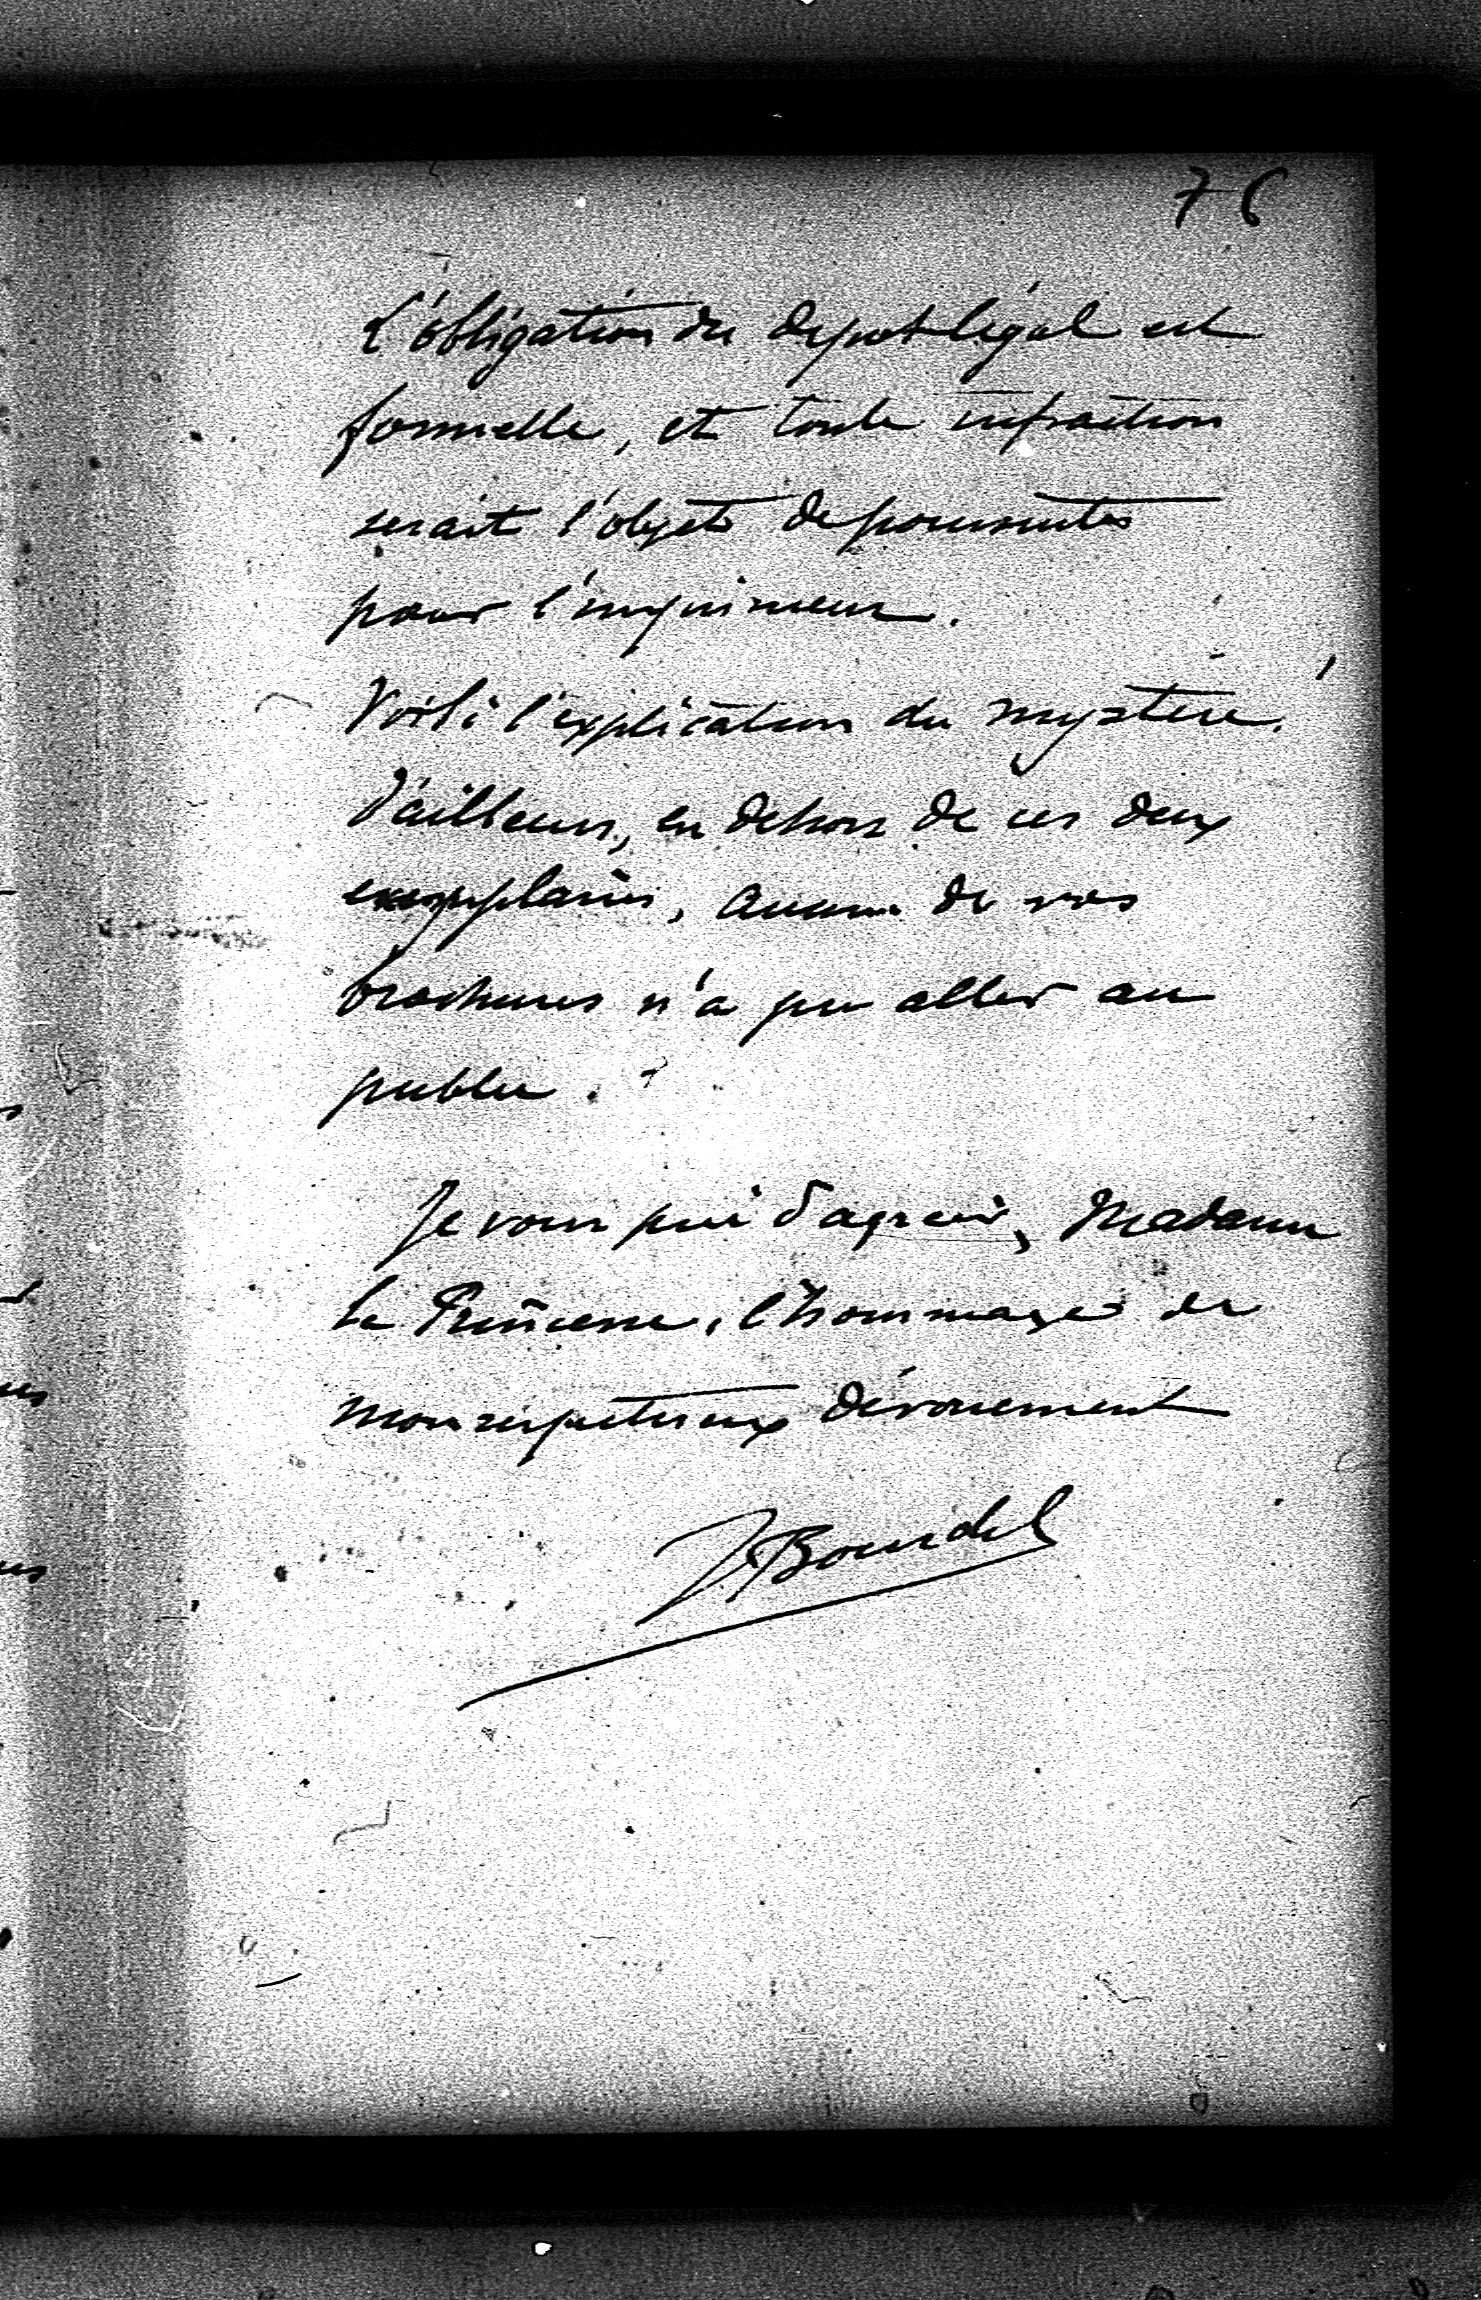 76
L'obligation du depot légal est
formelle, et toute infraction
serait l'objet de poursuites
pour l'imprimeur.
Voilà l'explication du mystère.
D'ailleurs, en dehors de ces deux
exemplaires, aucune de vos
brochures n'a pu aller au
public.
Je vous prie d'agréer, Madame
la Princesse, l'hommage de
mon respectueux dévouement
J Bourdel